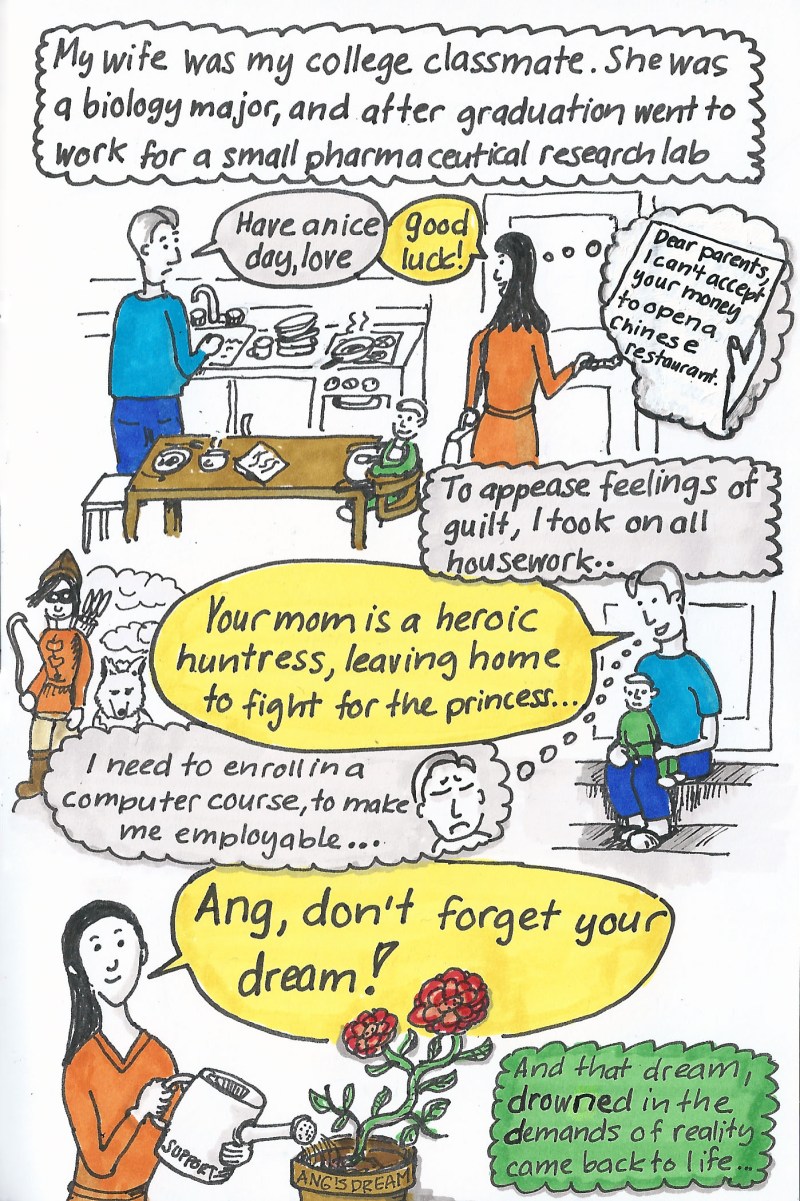 My wife was my college classmate. She was
a biology major, and after graduation went to
work for a small pharmaceutical research lab
Have a nice
day, love
good
luck!
Dear parents,
I can't accept
your money
to open a
chinese
restaurant.
To appease feelings of
guilt, I took on all
housework..
Your mom is a heroic
huntress, leaving home
to fight for the princess...
I need to enroll in a
computer course, to make
me employable...
Ang, don't forget your
dream!
SUPPORT
ANG'S DREAM
And that dream,
drowned in the
demands of reality
came back to life...